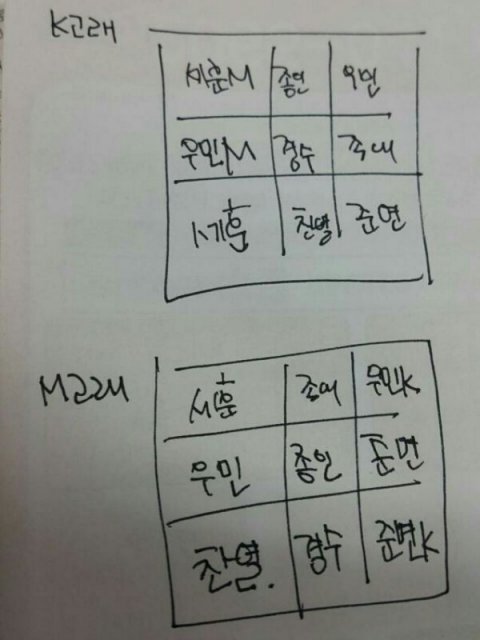 K고래
시훈M 종인 우민
우민M 경수 종대
세훈 찬열 준면
M고래
세훈 종대 우민K
우민 종인 준면
찬열. 경수 준면K